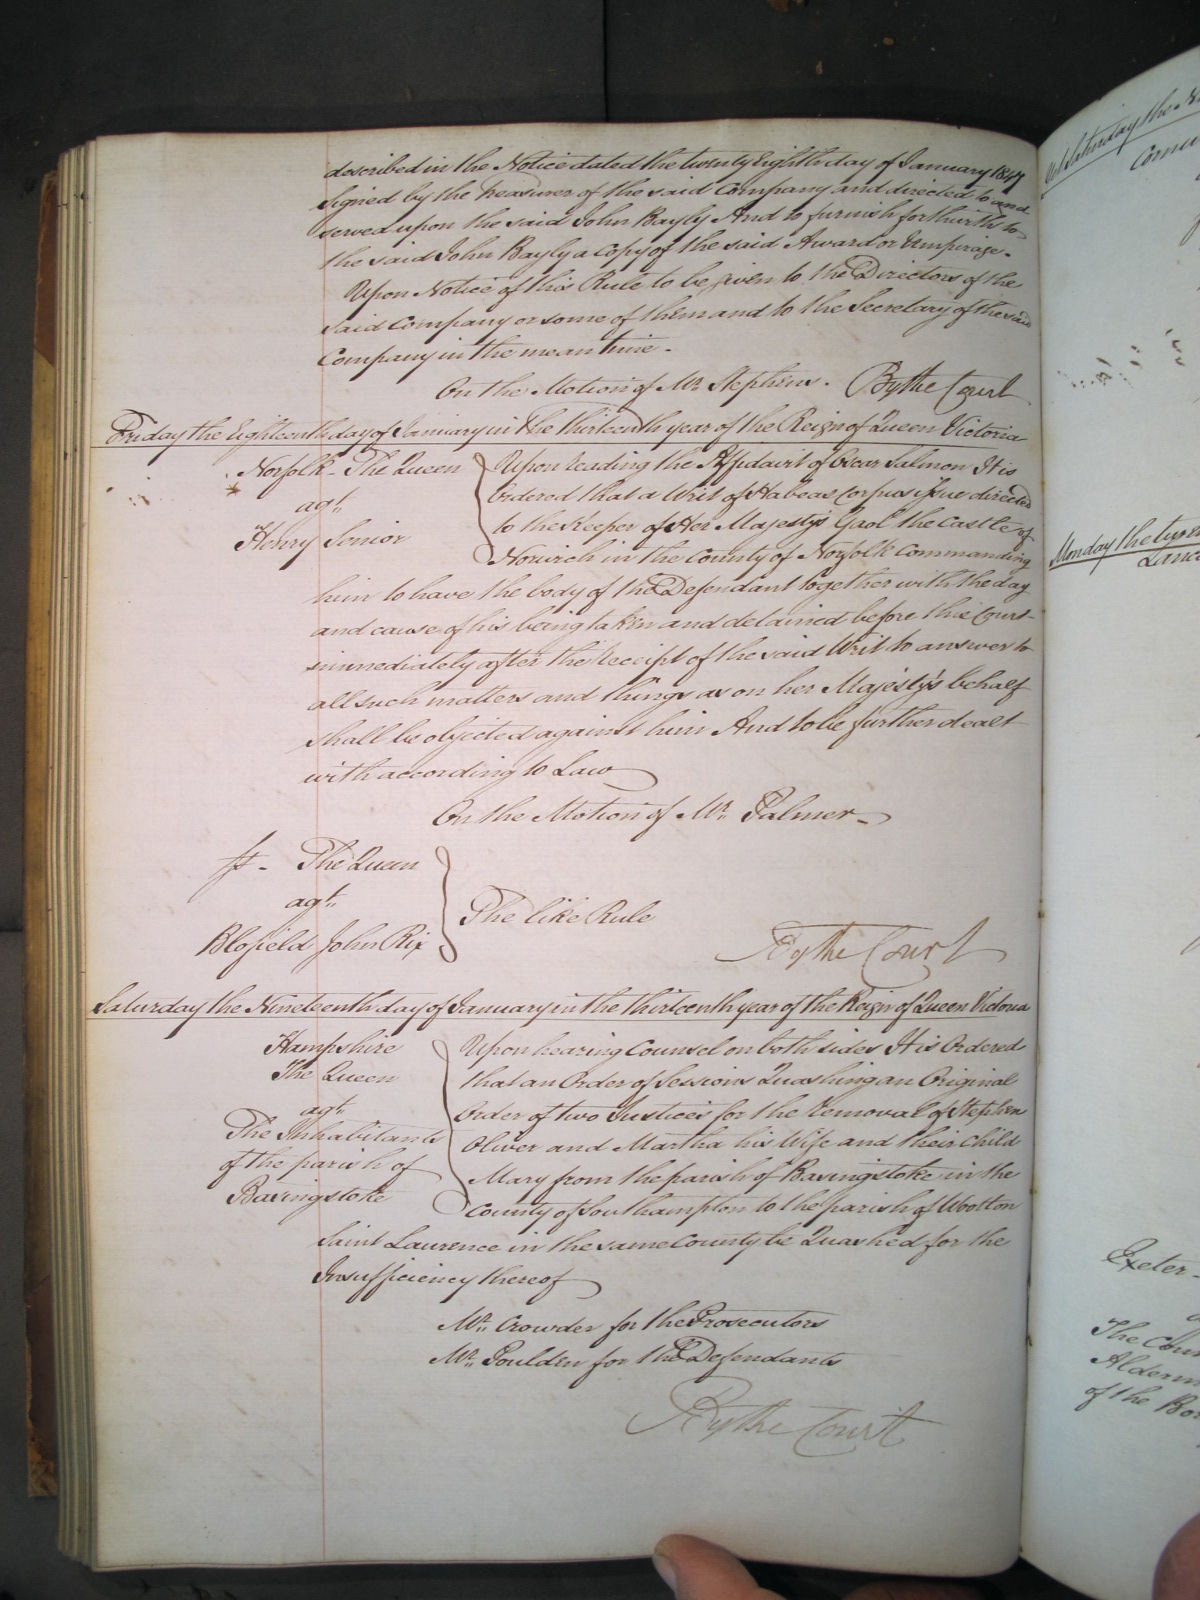 described in the Notice dated the twenty Eighth day of January 1847
signed by the Treasurer of the said Company and directed to and
served upon the said John Bayly And to furnish forthwith to
the said John Bayly a copy of the said Award or Umpirage.
Upon Notice of this Rule to be given to the Directors of the
said Company or some of them and to the Secretary of the said
Company in the mean time.
On the Motion of Mr. Stephens. By the Court
Friday the Eighteenth day of January in the thirteenth year of the Reign of Queen Victoria
Norfolk The Queen
agt.
Henry Senior
Upon reading the Affidavit of Oscar Salmon It is
Ordered that a Writ of Habeas corpus issue directed
to the Keeper of Her Majesty's Gaol the Castle of
Norwich in the County of Norfolk Commanding
him to have the body of the Defendant together with the day
and cause of his being taken and detained before this Court
immediately after the receipt of the said Writ to answer to
all such matters and things as on her Majesty's behalf
shall be objected against him And to be further dealt
with according to Law
On the Motion of Mr. Palmer
The Queen
agt.
Blofield John Rix
The like Rule
By the Court
Saturday the Nineteenth day of January in the thirteenth year of the Reign of Queen Victoria
Hampshire
The Queen
agt.
The Inhabitants
of the parish of
Basingstoke
Upon hearing Counsel on both sides It is Ordered
that an Order of Sessions Quashing an Original
Order of two Justices for the removal of Stephen
Oliver and Martha his Wife and their child
Mary from the parish of Basingstoke in the
County of Southampton to the parish of Wootton
Saint Laurence in the same County be Quashed for the
Insufficiency thereof
Mr. Crowder for the Prosecutors
Mr. Poulden for the Defendants
By the Court
Saturday the
Monday the
Exeter
The
of the